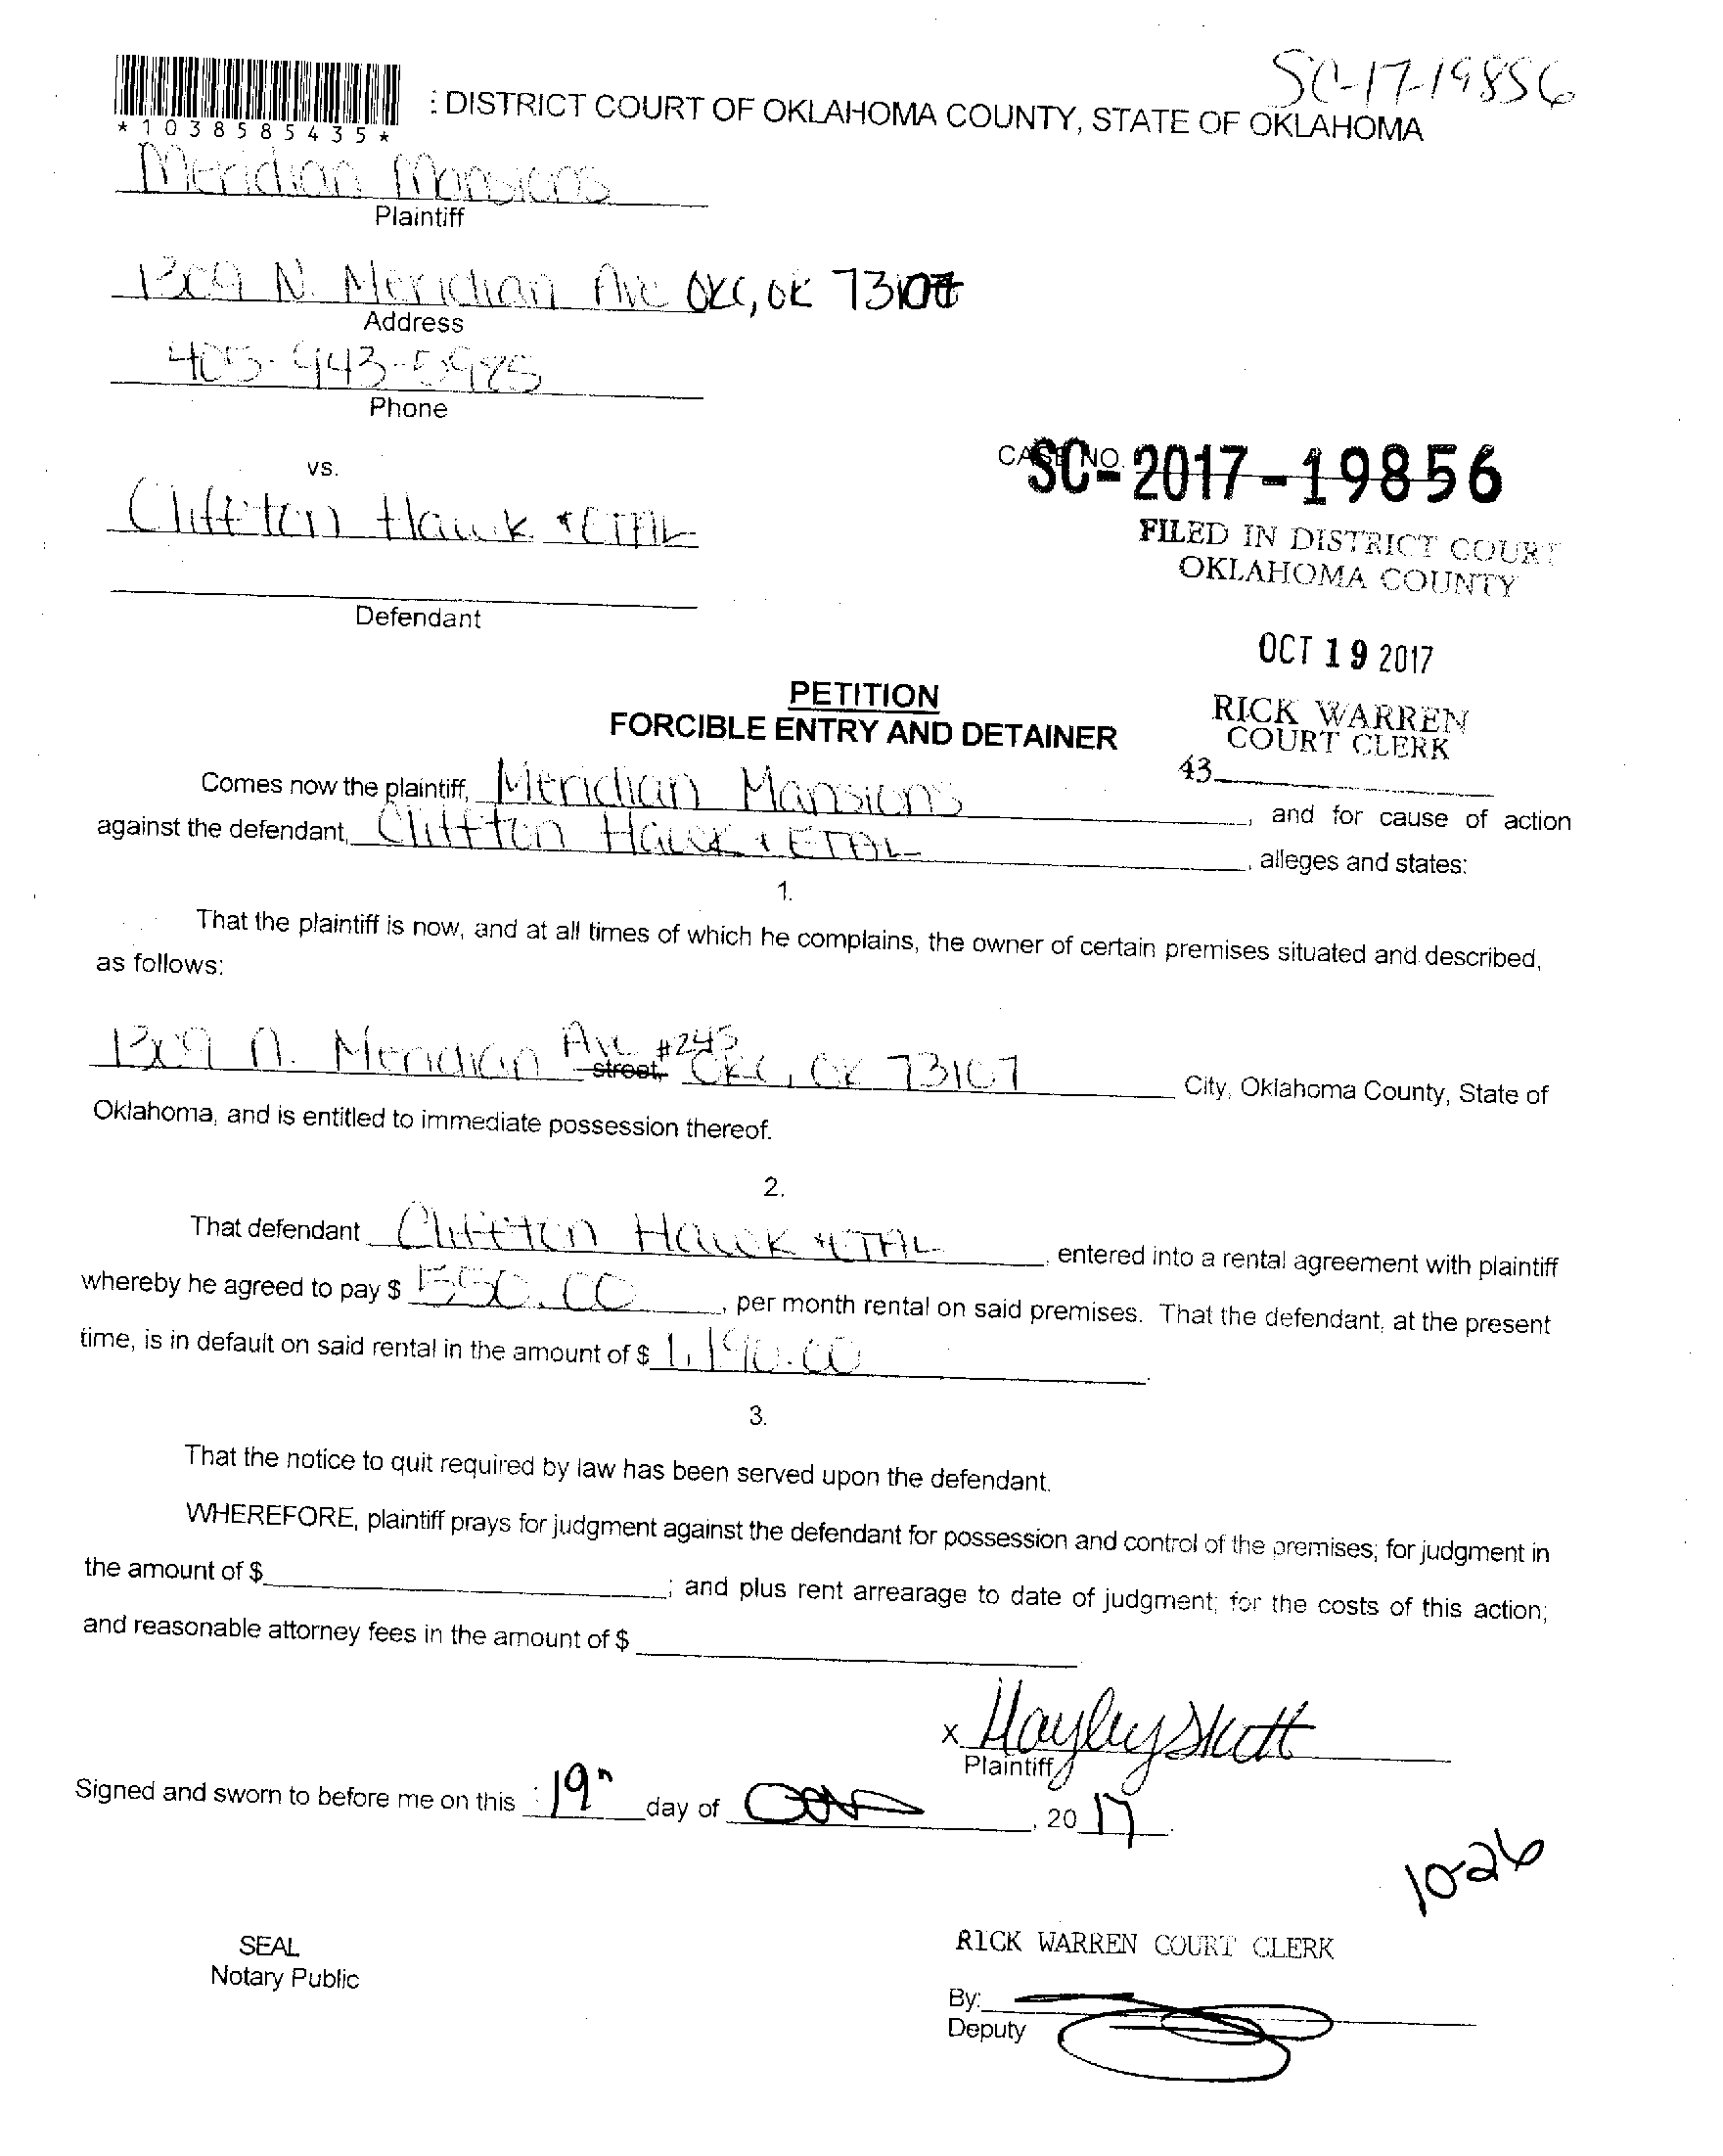 SC-17-19856
: DISTRICT COURT OF OKLAHOMA COUNTY, STATE OF OKLAHOMA
*1038585435*
Meridian Mansions
Plaintiff
1309 N. Meridian Ave OKC, OK 73107
Address
405-943-5985
Phone
vs.
CASE NO.
SC-2017-19856
Cliffton Hawk & ETAL
FILED IN DISTRICT COURT
OKLAHOMA COUNTY
Defendant
OCT 19 2017
PETITION
FORCIBLE ENTRY AND DETAINER
RICK WARREN
COURT CLERK
43
Comes now the plaintiff, Meridian Mansions, and for cause of action
against the defendant, Cliffton Hawk & ETAL, alleges and states:
1.
That the plaintiff is now, and at all times of which he complains, the owner of certain premises situated and described,
as follows:
1309 N. Meridian Ave #243 street, OKC, OK 73107 City, Oklahoma County, State of
Oklahoma, and is entitled to immediate possession thereof.
2.
That defendant Cliffton Hawk & ETAL, entered into a rental agreement with plaintiff
whereby he agreed to pay $ 550.00, per month rental on said premises. That the defendant, at the present
time, is in default on said rental in the amount of $ 1,190.00.
3.
That the notice to quit required by law has been served upon the defendant.
WHEREFORE, plaintiff prays for judgment against the defendant for possession and control of the premises; for judgment in
the amount of $ ; and plus rent arrearage to date of judgment; for the costs of this action;
and reasonable attorney fees in the amount of $
x Hayley Skutt
Plaintiff
Signed and sworn to before me on this 19th day of , 2017.
10-26
SEAL
Notary Public
RICK WARREN COURT CLERK
By:
Deputy